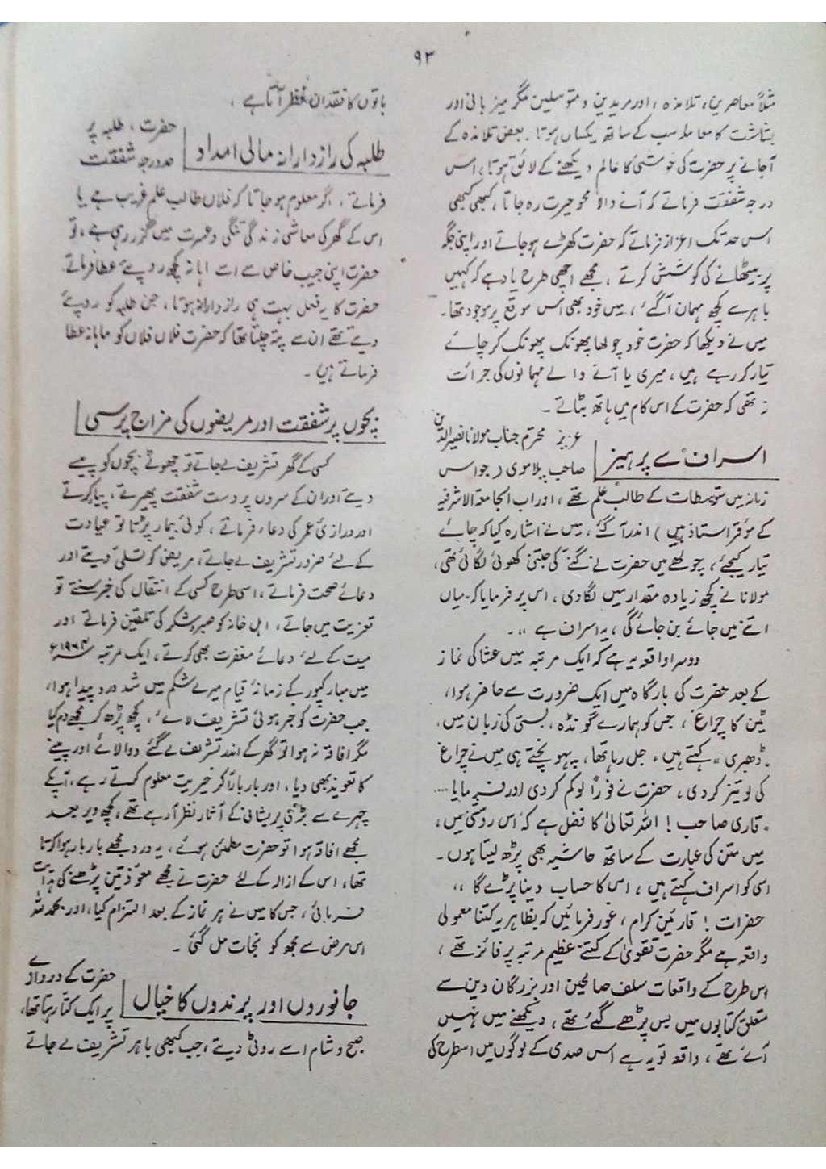 ۹۳
مثلاً معاصرین، تلامذہ، اور مریدین و متوسلین مگر میزبانی اور
بشاشت کا معاملہ سب کے ساتھ یکساں ہوتا۔ بعض تلامذہ کے
آجانے پر حضرت کی خوشی کا عالم دیکھنے کے لائق ہوتا، اس
درجہ شفقت فرماتے کہ آنے والا محو حیرت رہ جاتا، کبھی کبھی
اس حد تک اعزاز فرماتے کہ حضرت کھڑے ہوجاتے اور اپنی جگہ
پر بیٹھانے کی کوشش کرتے، مجھے اچھی طرح یاد ہے کہ کہیں
باہر سے کچھ مہمان آگئے، میں خود بھی اس موقع پر موجود تھا۔
میں نے دیکھا کہ حضرت خود چولھا پھونک پھونک کر چائے
تیار کر رہے ہیں، میری یا آنے والے مہمانوں کی جرأت
نہ تھی کہ حضرت کے اس کام میں ہاتھ بٹاتے۔
اسراف سے پرہیز
عزیز محترم جناب مولانا نصیرالدین
صاحب پلاموی (جو اس
زمانہ میں متوسطات کے طالب علم تھے، اور اب الجامعۃ الاشرفیہ
کے موقر استاذ ہیں) اندر آگئے، میں نے اشارہ کیا کہ چائے
تیار کیجئے، چولھے میں حضرت نے گنے کی جتنی کھوئی لگائی تھی،
مولانا نے کچھ زیادہ مقدار میں لگا دی، اس پر فرمایا کہ میاں
اتنے میں چائے بن جائے گی، یہ اسراف ہے ،،۔
دوسرا واقعہ یہ ہے کہ ایک مرتبہ میں عشا کی نماز
کے بعد حضرت کی بارگاہ میں ایک ضرورت سے حاضر ہوا،
ٹین کا چراغ، جس کو ہمارے گونڈہ، بستی کی زبان میں،
،ڈھبری، کہتے ہیں، جل رہا تھا، پہونچتے ہی میں نے چراغ
کی لو تیز کر دی، حضرت نے فوراً لو کم کر دی اور فرمایا ....
،قاری صاحب! اللہ تعالیٰ کا فضل ہے کہ اس روشنی میں،
میں متن کی عبارت کے ساتھ حاشیہ بھی پڑھ لیتا ہوں۔
اسی کو اسراف کہتے ہیں، اس کا حساب دینا پڑے گا ،،
حضرات! قارئین کرام، غور فرمائیں کہ بظاہر یہ کتنا معمولی
واقعہ ہے مگر حضرت تقویٰ کے کتنے عظیم مرتبہ پر فائز تھے،
اس طرح کے واقعات سلف صالحین اور بزرگان دین سے
متعلق کتابوں میں بس پڑھے گئے تھے، دیکھنے میں نہیں
آئے تھے، واقعہ تو یہ ہے اس صدی کے لوگوں میں اسطرح کی
باتوں کا فقدان نظر آتا ہے،
طلبہ کی رازدارانہ مالی امداد
حضرت، طلبہ پر
حد درجہ شفقت
فرماتے، اگر معلوم ہو جاتا کہ فلاں طالب علم غریب ہے یا
اس کے گھر کی معاشی زندگی تنگی و عسرت میں گزر رہی ہے، تو
حضرت اپنی جیب خاص سے اسے ماہانہ کچھ روپئے عطا فرماتے
حضرت کا یہ فعل بہت ہی رازدارانہ ہوتا، جن طلبہ کو روپئے
دیتے تھے ان سے پتہ چلتا تھا کہ حضرت فلاں فلاں کو ماہانہ عطا
فرماتے ہیں۔
بچوں پر شفقت اور مریضوں کی مزاج پرسی
کسی کے گھر تشریف لے جاتے تو چھوٹے بچوں کو پیسے
دیتے اور ان کے سروں پر دست شفقت پھیرتے، پیار کرتے
اور درازی عمر کی دعاء فرماتے، کوئی بیمار پڑتا تو عیادت
کے لئے ضرور تشریف لے جاتے، مریض کو تسلی دیتے اور
دعائے صحت فرماتے، اسی طرح کسی کے انتقال کی خبر سنتے تو
تعزیت میں جاتے، اہل خانہ کو صبر و شکر کی تلقین فرماتے اور
میت کے لئے دعائے مغفرت بھی کرتے، ایک مرتبہ ۱۹۶۴ء
میں مبارکپور کے زمانۂ قیام میرے شکم میں شدید درد پیدا ہوا،
جب حضرت کو خبر ہوئی تشریف لائے، کچھ پڑھ کر مجھے دم کیا
مگر افاقہ نہ ہوا تو گھر کے اندر تشریف لے گئے دوا لائے اور پینے
کا تعویذ بھی دیا، اور بار بار آکر خیریت معلوم کرتے رہے، آپکے
چہرے سے بڑی پریشانی کے آثار نظر آرہے تھے، کچھ دیر بعد
مجھے افاقہ ہوا تو حضرت مطمئن ہوئے، یہ درد مجھے بار بار ہوا کرتا
تھا، اس کے ازالہ کے لئے حضرت نے مجھے معوذتین پڑھنے کی ہدایت
فرمائی، جس کا میں نے ہر نماز کے بعد التزام کیا، اور بحمدہ اللہ
اس مرض سے مجھ کو نجات مل گئی۔
جانوروں اور پرندوں کا خیال
حضرت کے دروازے
پر ایک کتا رہتا تھا،
صبح و شام اسے روٹی دیتے، جب کبھی باہر تشریف لے جاتے